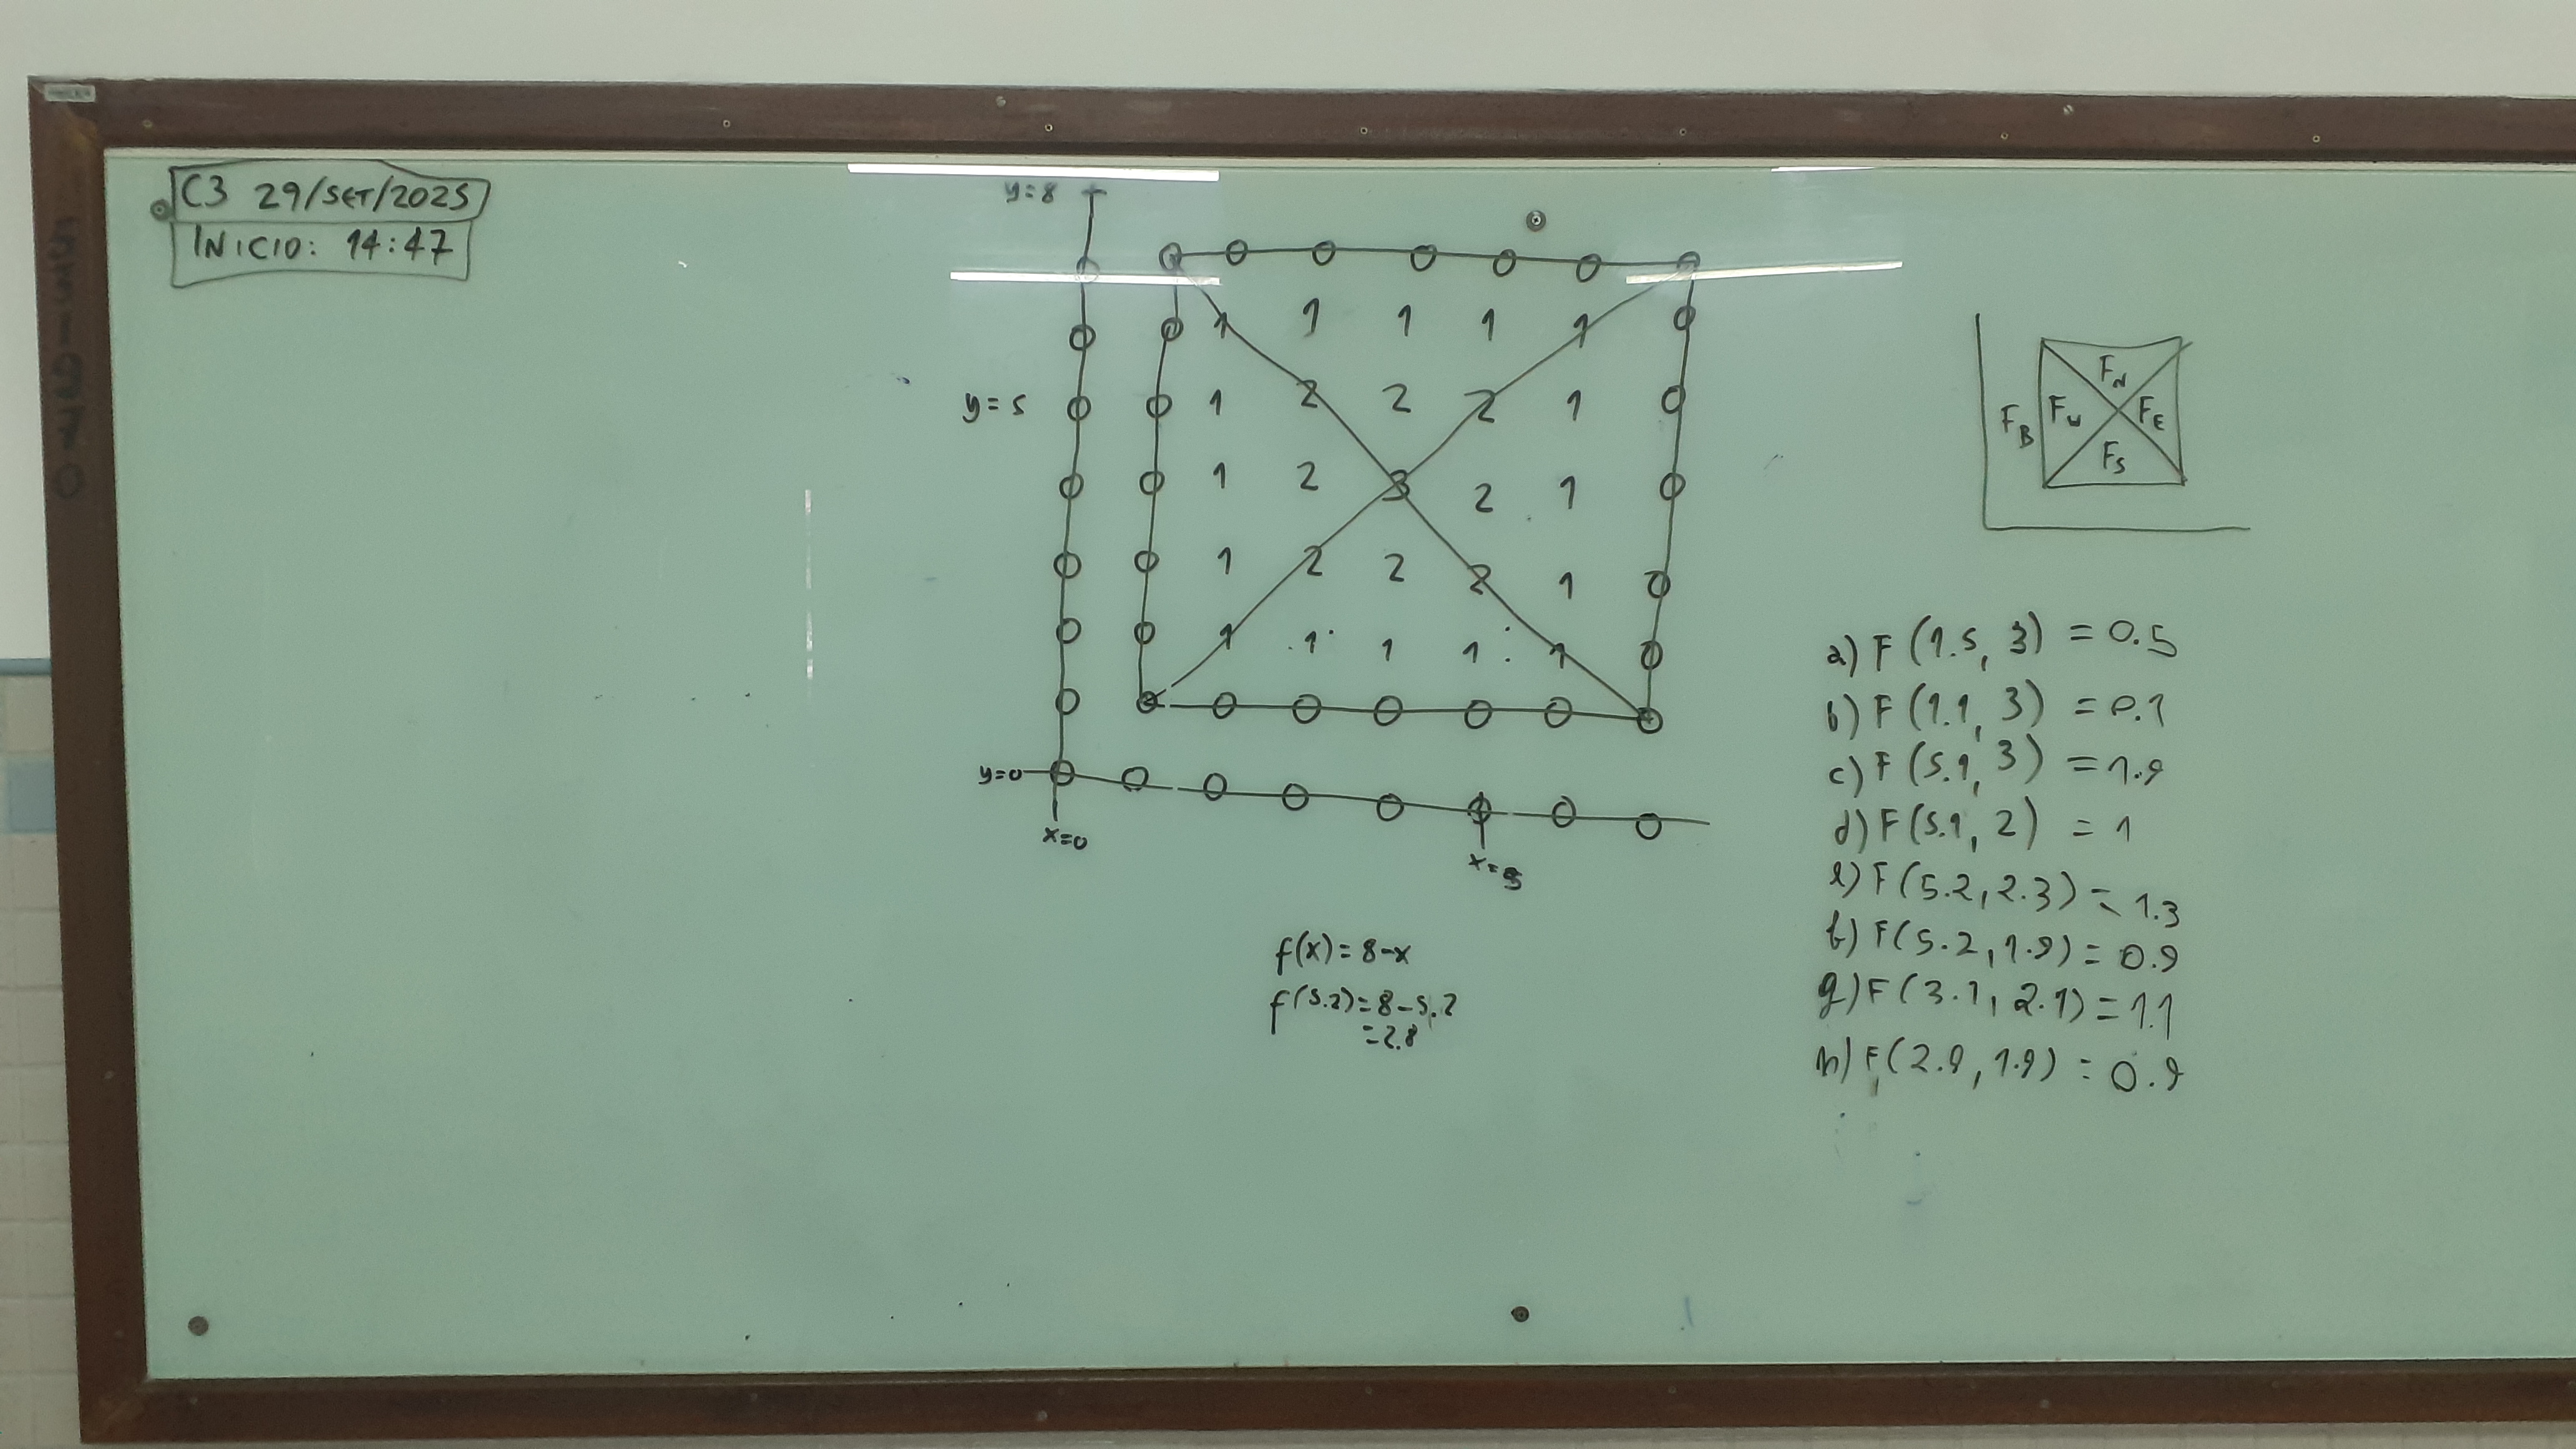 C3 29/SET/2025
INICIO: 14:47
y=8
0 0 0 0 0 0 0 0
0 0 1 1 1 1 1 0
y=5 0 0 1 2 2 2 1 0
0 0 1 2 3 2 1 0
0 0 1 2 2 2 1 0
0 0 1 1 1 1 1 0
0 0 0 0 0 0 0 0
y=0 0 0 0 0 0 0 0 0
x=0
x=5
F_N
F_B F_W F_E
F_S
a) F(1.5, 3) = 0.5
b) F(1.1, 3) = 0.1
c) F(5.1, 3) = 1.9
d) F(5.1, 2) = 1
e) F(5.2, 2.3) = 1.3
f) F(5.2, 1.9) = 0.9
g) F(3.1, 2.1) = 1.1
h) F(2.9, 1.9) = 0.9
f(x) = 8-x
f(5.2) = 8-5.2
= 2.8